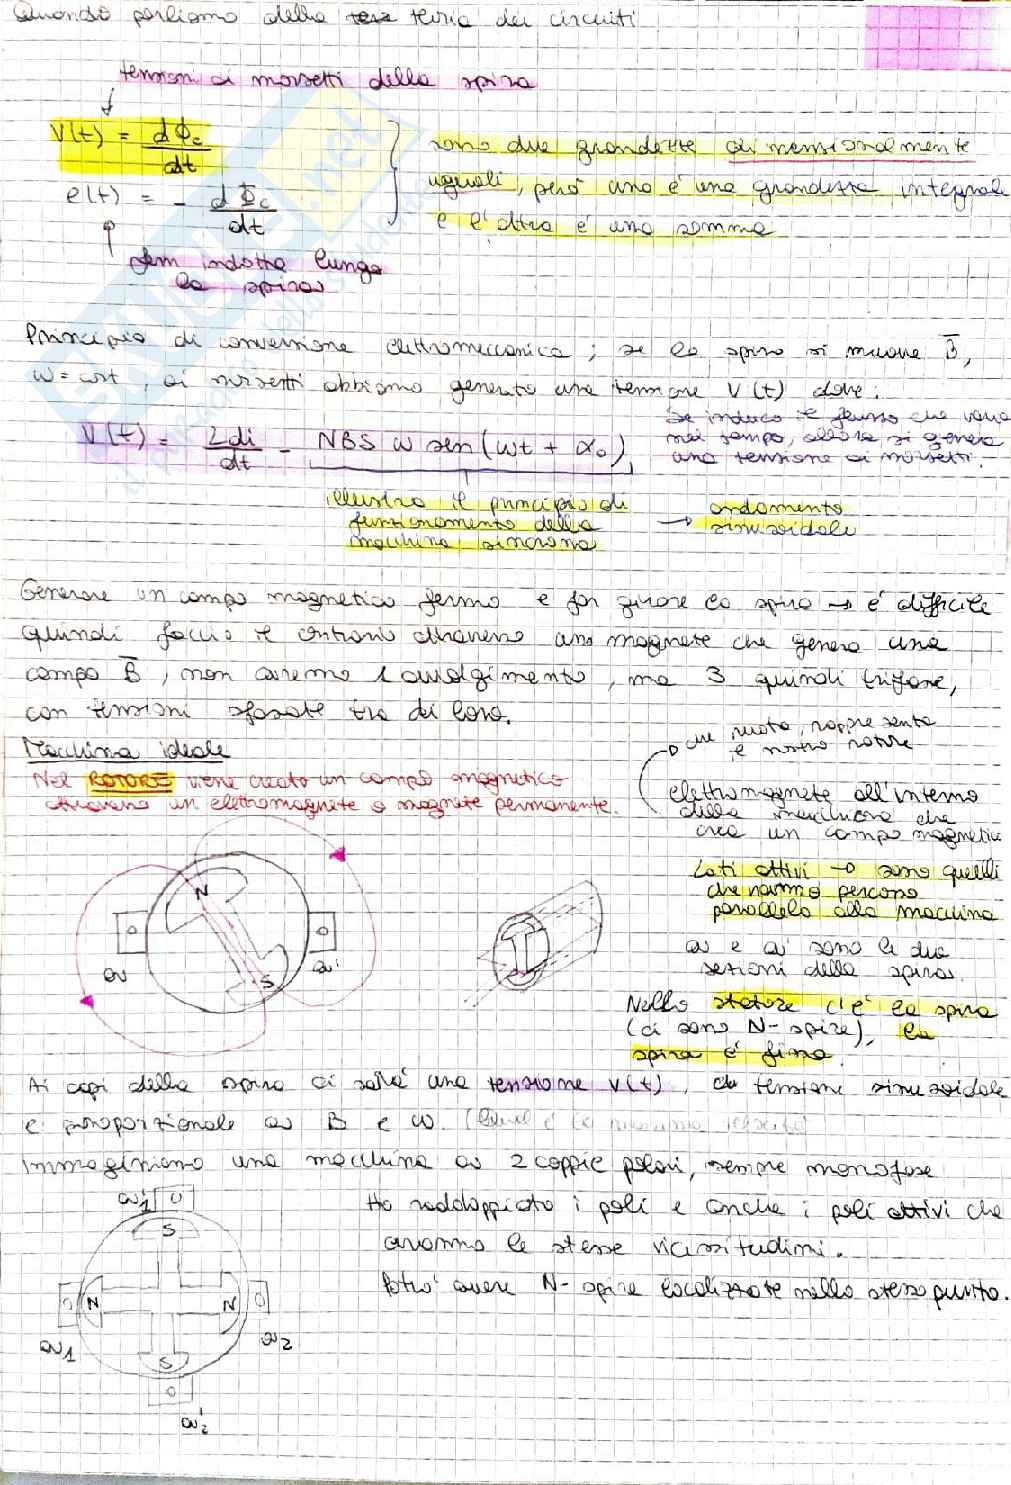 Quando parliamo della teoria dei circuiti
tensioni ai morsetti della spira
V(t) = dΦc/dt
e(t) = - dΦc/dt
sono due grandezze dimensionalmente
uguali, però una è una grandezza integrale
e l'altra è una somma
fem indotta lungo
la spira
Principio di conversione elettromeccanica; se la spira si muove B̄,
ω = cost, ai morsetti abbiamo generato una tensione V(t) dove:
V(t) = Ldi/dt - NBS ω sen(ωt + α₀)
Se induco il flusso che varia
nel tempo, allora si genera
una tensione ai morsetti.
illustra il principio di
funzionamento della
macchina sincrona
→ andamento
sinusoidale
Generare un campo magnetico fermo e far girare la spira → è difficile
quindi faccio il contrario attraverso una magnete che genera una
campo B̄, non avremo 1 avvolgimento, ma 3 quindi trifase,
con tensioni sfasate tra di loro.
Macchina ideale
Nel ROTORE viene creato un campo magnetico
attraverso un elettromagnete o magnete permanente.
che ruota, rappresenta
il nostro rotore
elettromagnete all'interno
della macchina che
crea un campo magnetico
Lati attivi → sono quelli
che vanno percorso
parallelo alla macchina
a e a' sono le due
sezioni della spira.
N
S
a
a'
Nello statore c'è la spira
(ci sono N-spire), la
spira è fissa.
Ai capi della spira ci sarà una tensione V(t), tensione sinusoidale
e proporzionale a B e ω.
Immaginiamo una macchina a 2 coppie polari, sempre monofase
a'1
S
N
N
S
a1
a2
a'2
Ho raddoppiato i poli e anche i poli attivi che
avranno le stesse vicissitudini.
Potrò avere N-spire localizzate nello stesso punto.